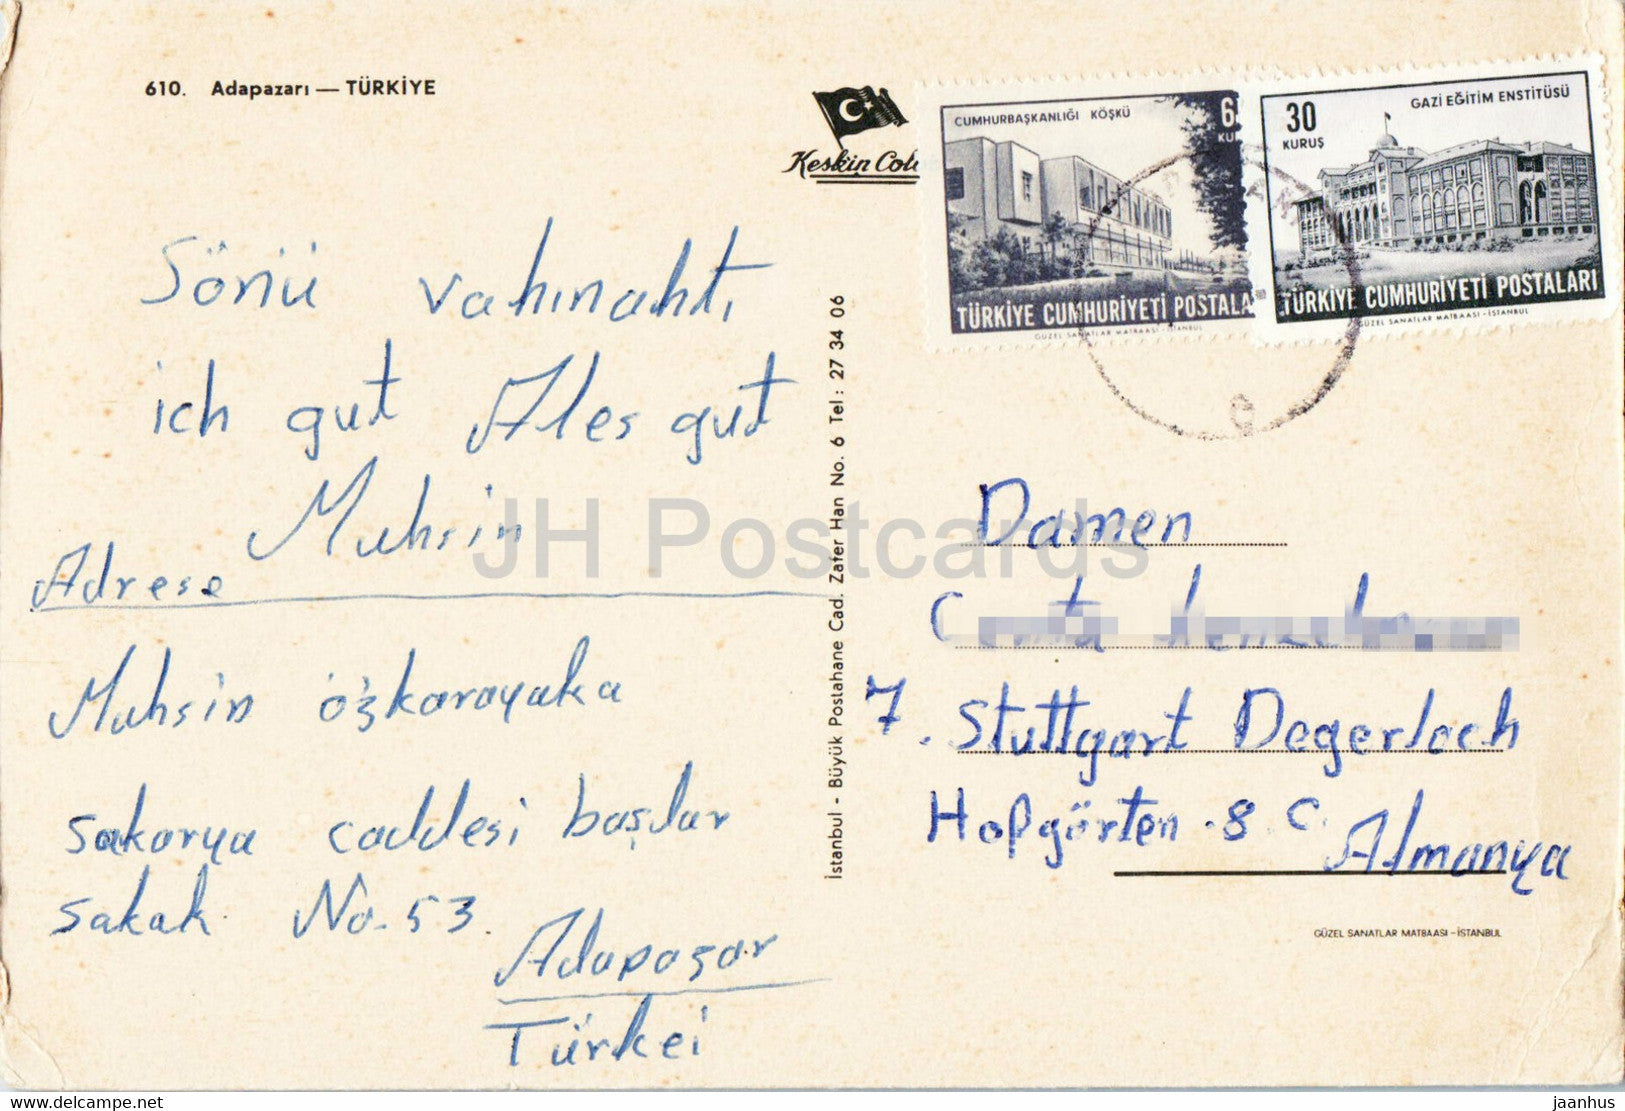 610. Adapazarı — TÜRKİYE
Keskin Colo
CUMHURBAŞKANLIĞI KÖŞKÜ
TÜRKİYE CUMHURİYETİ POSTALA
GÜZEL SANATLAR MATBAASI - İSTANBUL
30
KURUŞ
GAZİ EĞİTİM ENSTİTÜSÜ
TÜRKİYE CUMHURİYETİ POSTALARI
GÜZEL SANATLAR MATBAASI - İSTANBUL
Sönü vahınahtı
ich gut Ales gut
Muhsin
Adrese
Muhsin özkarayaka
sakarya caddesi başlar
sakak No. 53.
Adapaşar
Türkei
İstanbul - Büyük Postahane Cad. Zafer Han No. 6 Tel: 27 34 06
Damen
7. Stuttgart Degerloch
Hofgörten . 8 C.
Almanya
GÜZEL SANATLAR MATBAASI - İSTANBUL
JH Postcards
www.delcampe.net
jaanhus